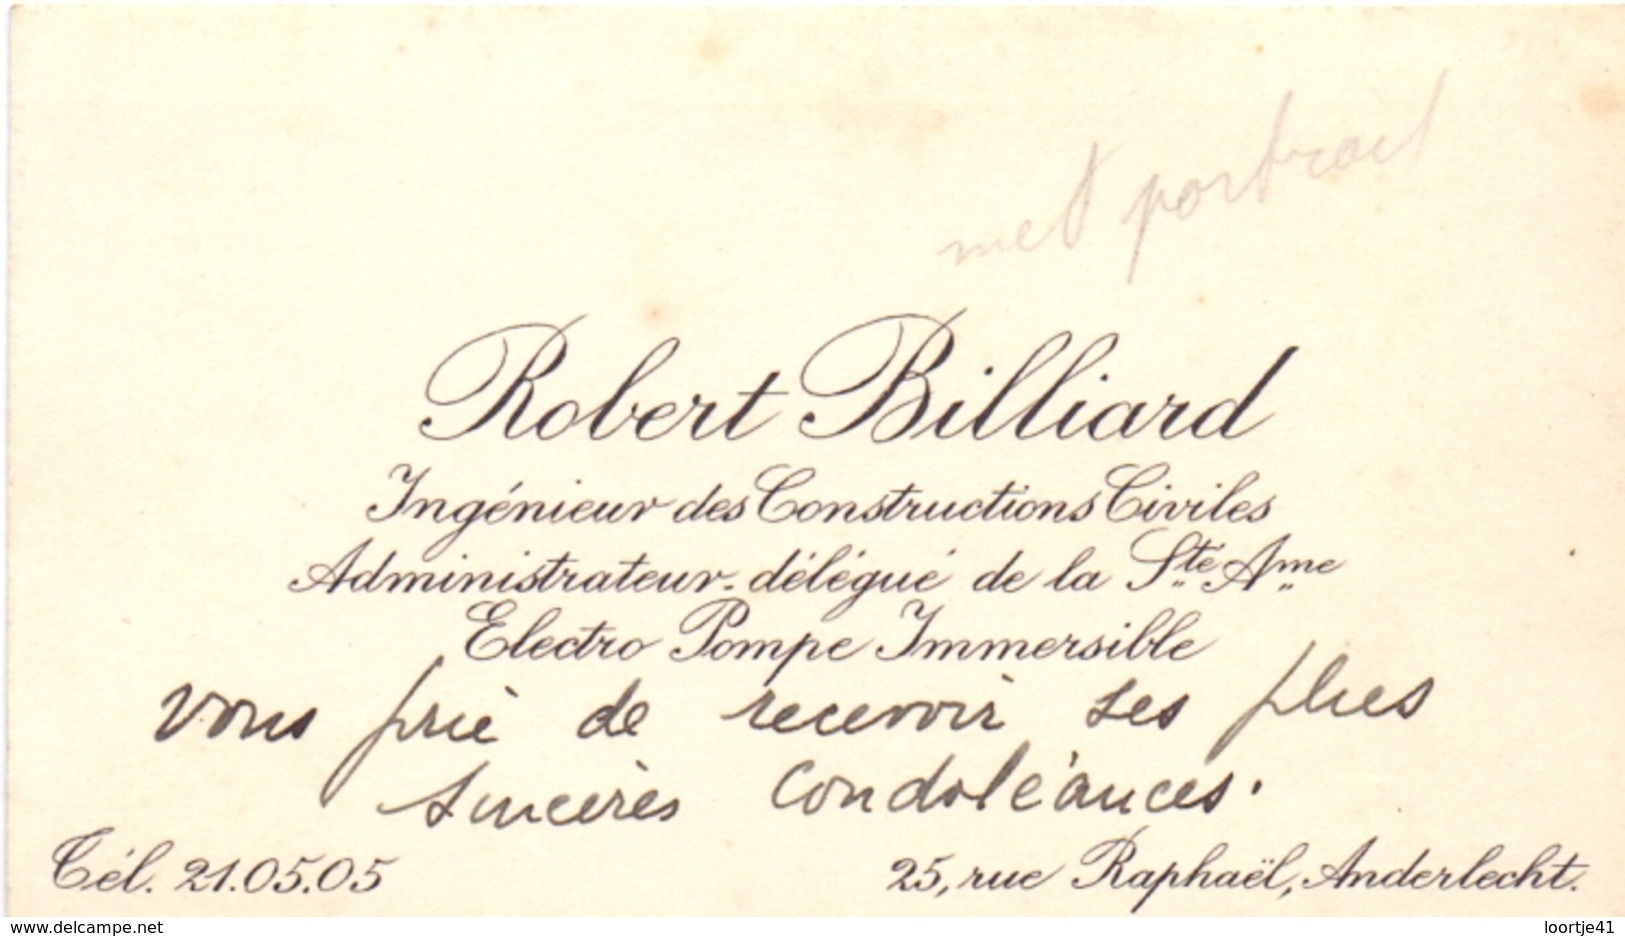 met portrait
Robert Billiard
Ingénieur des Constructions Civiles
Administrateur-délégué de la Sté Ame
Electro Pompe Immersible
vous prie de recevoir ses plus
sincères condoléances.
Tél. 21.05.05
25, rue Raphaël, Anderlecht.
www.delcampe.net
loortje41